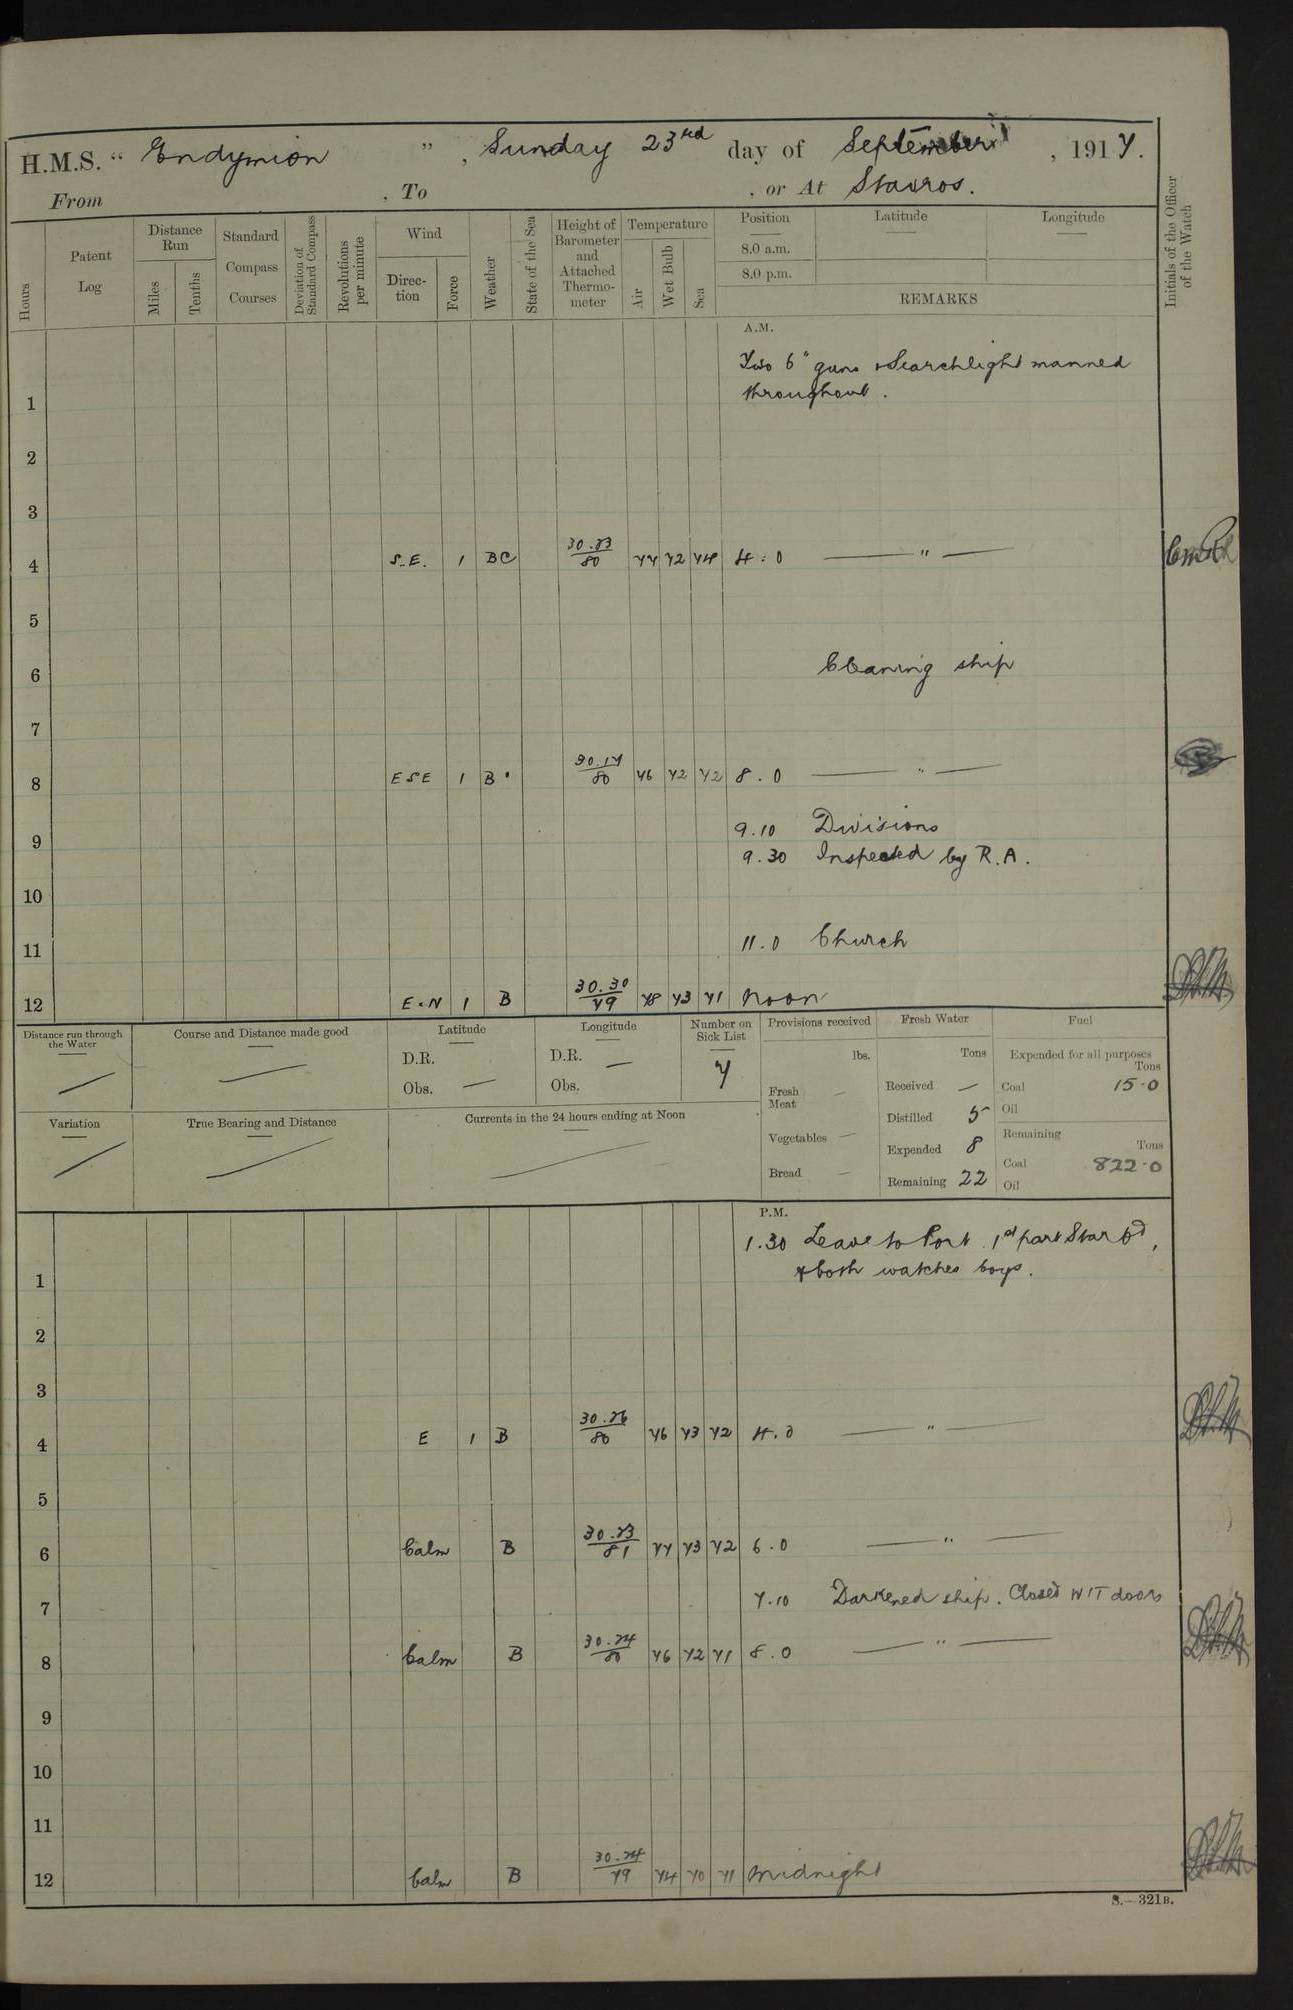 H.M.S. " Endymion ", Sunday 23rd day of September, 1917.
From , To , or At Stavros.
Hours
Patent Log
Distance Run
Miles
Tenths
Standard Compass Courses
Deviation of Standard Compass
Revolutions per minute
Wind
Direction
Force
Weather
State of the Sea
Height of Barometer and Attached Thermometer
Temperature
Air
Wet Bulb
Sea
Position
8.0 a.m.
8.0 p.m.
Latitude
Longitude
REMARKS
Initials of the Officer of the Watch
A.M.
Two 6" guns & Searchlight manned
1 throughout.
2
3
4 S.E. 1 BC 30.23/80 77 72 74 4.0 "
5
6 Cleaning ship
7
8 ESE 1 B 30.17/80 76 72 72 8.0 "
9.10 Divisions
9
9.30 Inspected by R.A.
10
11 11.0 Church
12 E×N 1 B 30.30/79 78 73 71 Noon
Distance run through the Water
Course and Distance made good
Latitude
D.R.
Obs.
Longitude
D.R.
Obs.
Number on Sick List
7
Provisions received
lbs.
Fresh Meat
Vegetables
Bread
Fresh Water
Tons
Received —
Distilled 5
Expended 8
Remaining 22
Fuel
Expended for all purposes
Tons
Coal 15.0
Oil
Remaining
Tons
Coal 822.0
Oil
Variation
True Bearing and Distance
Currents in the 24 hours ending at Noon
P.M.
1.30 Leave to Port 1st part Starbd,
1 & both watches boys.
2
3
4 E 1 B 30.26/80 76 73 72 4.0 "
5
6 Calm B 30.23/81 77 73 72 6.0 "
7 7.10 Darkened ship. Closed W/T doors
8 Calm B 30.24/80 76 72 71 8.0 "
9
10
11
12 Calm B 30.24/79 74 70 71 Midnight
S.—321B.